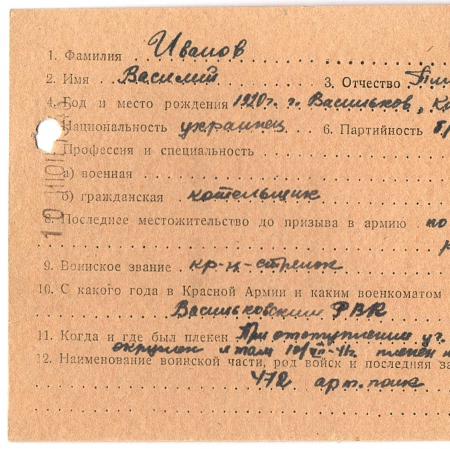 1. Фамилия Иванов
2. Имя Василий 3. Отчество
4. Год и место рождения 1920 г. г. Васильков,
Национальность украинец 6. Партийность б/
Профессия и специальность
а) военная
б) гражданская котельщик
8. Последнее местожительство до призыва в армию по
9. Воинское звание кр-ц-стрелок
10. С какого года в Красной Армии и каким военкоматом
Васильковский РВК
11. Когда и где был пленен При отступлении
и там пленен
12. Наименование воинской части, род войск и последняя
472 арт. полк